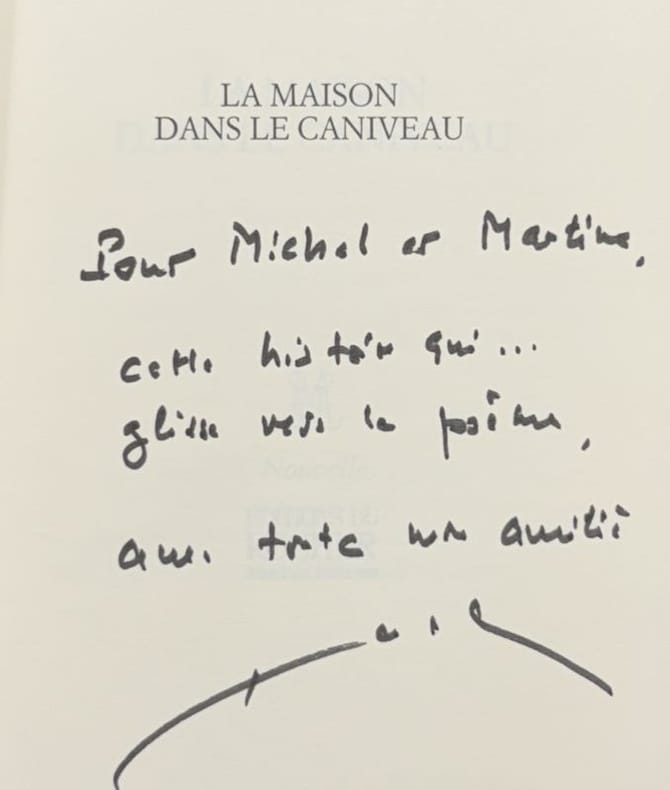 LA MAISON
DANS LE CANIVEAU
Pour Michel et Martine,
cette histoire qui...
glisse vers le poème,
avec toute mon amitié